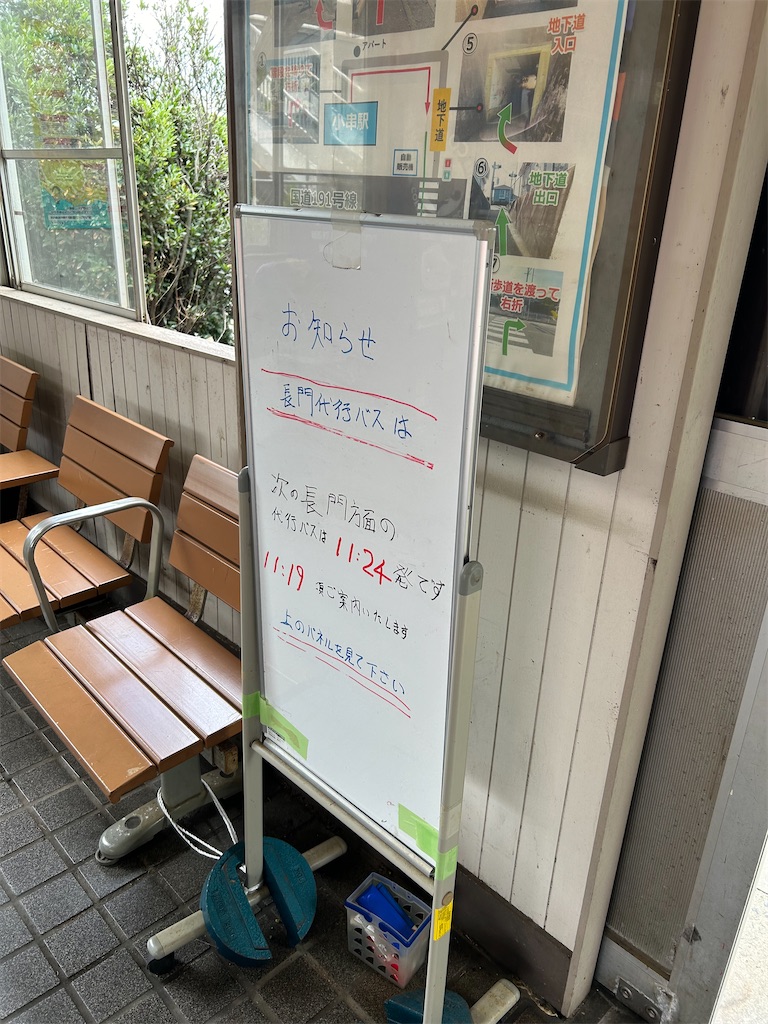 地下道
入口
⑤
アパート
小串駅
地下道
自動
販売機
⑥
地下道
出口
国道191号線
歩道を渡って
右折
お知らせ
長門代行バスは
次の長門方面の
代行バスは 11:24 発です
11:19 頃ご案内いたします
上のパネルを見て下さい